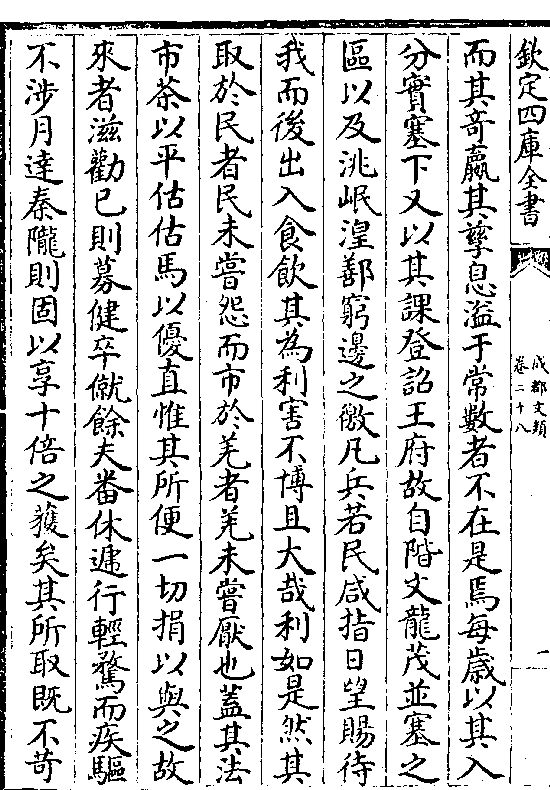 欽定四庫全書
成都文類
卷二十八
一
而其竒羸其孳息溢于常數者不在是焉每嵗以其入
分實塞下又以其課登詔王府故自階文龍茂並塞之
區以及洮岷湟鄯窮邊之徼凡兵若民咸指日望賜待
我而後出入食飲其為利害不博且大哉利如是然其
取於民者民未嘗怨而市於羌者羌未嘗厭也蓋其法
市茶以平估估馬以優直惟其所便一切捐以與之故
來者滋勸已則募健卒僦餘夫畨休遞行輕騖而疾驅
不涉月達秦隴則固以享十倍之獲矣其所取既不苛